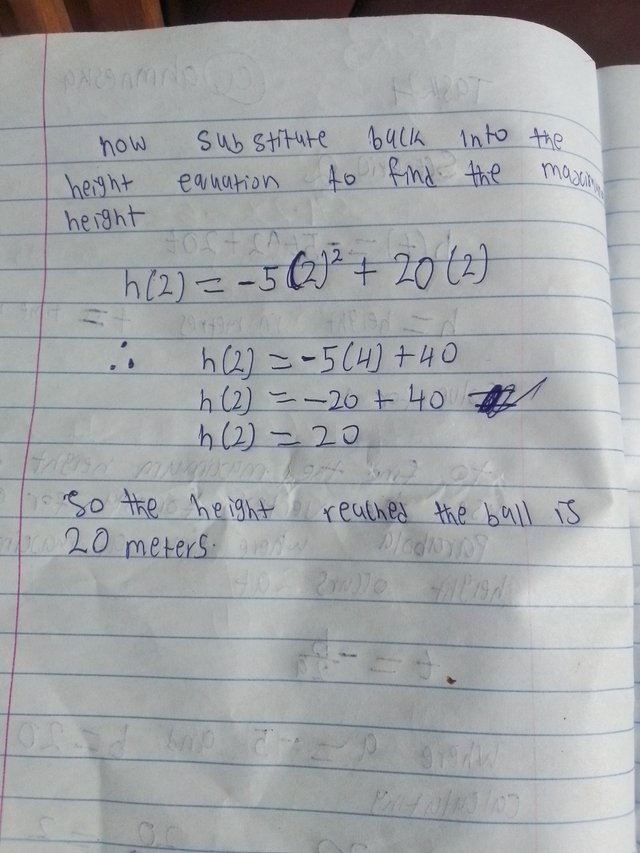 now substitute back into the
height equation to find the maximum
height
h(2) = -5(2)² + 20(2)
∴ h(2) = -5(4) + 40
h(2) = -20 + 40
h(2) = 20
So the height reached the ball is
20 meters.